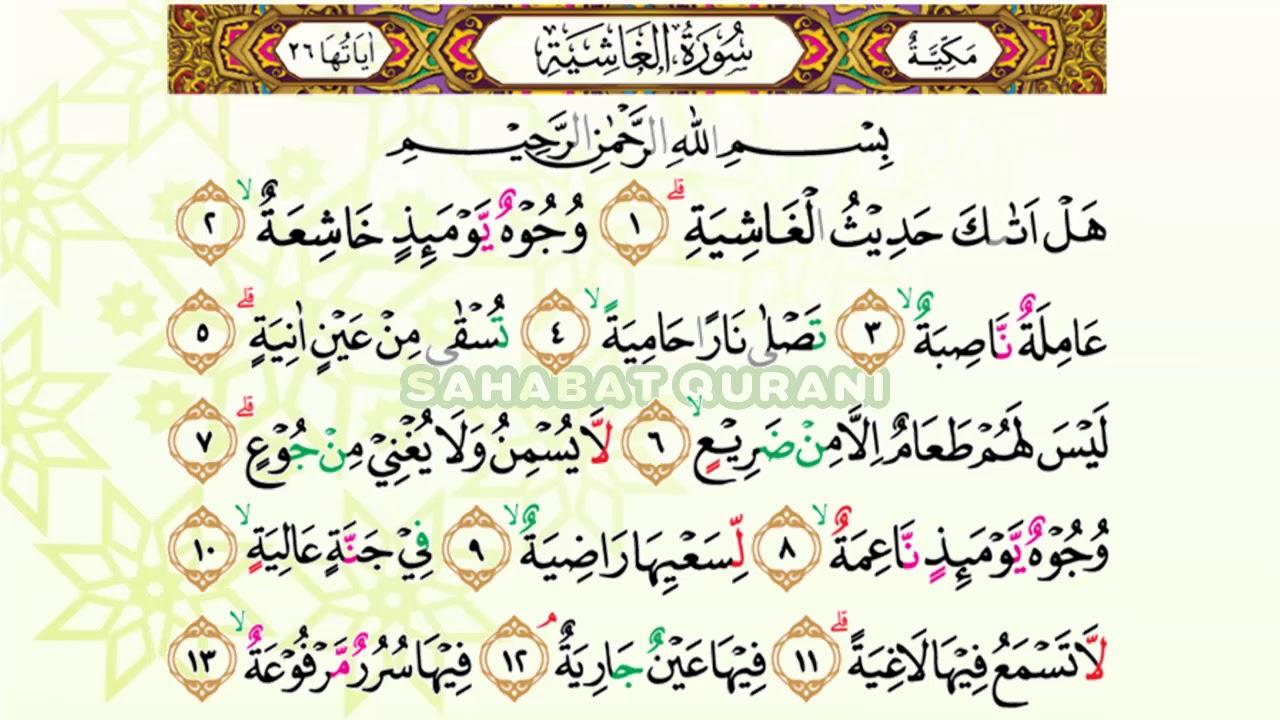 مَكِّيَّةٌ سُوْرَةُ الْغَاشِيَةِ اٰيَاتُهَا ٢٦
بِسْمِ اللّٰهِ الرَّحْمٰنِ الرَّحِيْمِ
هَلْ اَتٰىكَ حَدِيْثُ الْغَاشِيَةِۗ ١ وُجُوْهٌ يَّوْمَىِٕذٍ خَاشِعَةٌ ۙ ٢
عَامِلَةٌ نَّاصِبَةٌ ۙ ٣ تَصْلٰى نَارًا حَامِيَةً ۙ ٤ تُسْقٰى مِنْ عَيْنٍ اٰنِيَةٍ ۗ ٥
SAHABAT QURANI
لَيْسَ لَهُمْ طَعَامٌ اِلَّا مِنْ ضَرِيْعٍۙ ٦ لَّا يُسْمِنُ وَلَا يُغْنِيْ مِنْ جُوْعٍۗ ٧
وُجُوْهٌ يَّوْمَىِٕذٍ نَّاعِمَةٌ ۙ ٨ لِّسَعْيِهَا رَاضِيَةٌ ۙ ٩ فِيْ جَنَّةٍ عَالِيَةٍۙ ١٠
لَّا تَسْمَعُ فِيْهَا لَاغِيَةً ۗ ١١ فِيْهَا عَيْنٌ جَارِيَةٌ ۘ ١٢ فِيْهَا سُرُرٌ مَّرْفُوْعَةٌ ۙ ١٣